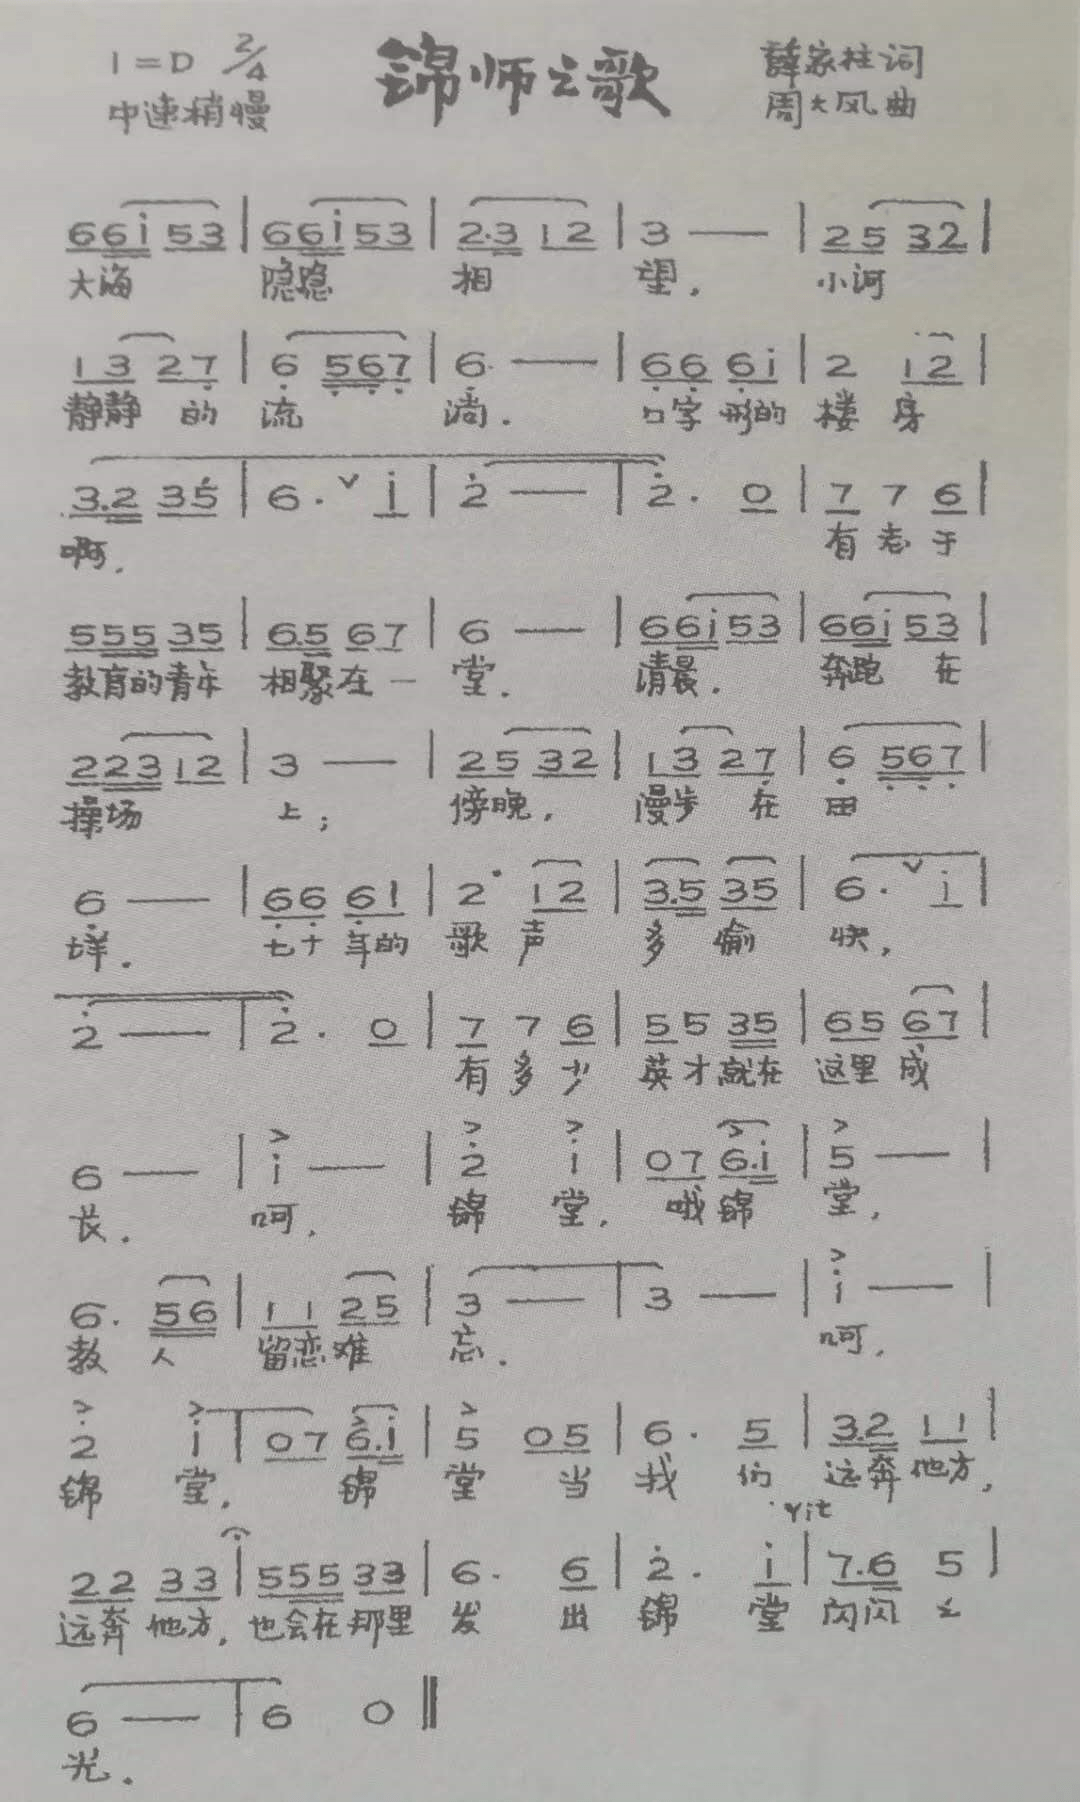 1=D 2/4 锦师之歌 薛家柱词
中速稍慢 周大风曲
66i 53 | 66i 53 | 2·3 12 | 3 — | 25 32 |
大海 隐隐 相 望, 小河
13 27 | 6 567 | 6 — | 66 6i | 2 12 |
静静 的 流 淌. 口字 形的 楼 房
3.2 35 | 6· ˅ i | 2 — | 2· 0 | 7 7 6 |
啊, 有志于
555 35 | 6.5 67 | 6 — | 66i 53 | 66i 53 |
教育的青年 相聚在一 堂. 清晨. 奔跑 在
223 12 | 3 — | 25 32 | 13 27 | 6 567 |
操场 上; 傍晚, 漫步 在 田
6 — | 66 61 | 2 12 | 3.5 35 | 6· ˅ i |
垟. 七十 年的 歌 声 多 愉 快,
2 — | 2· 0 | 7 7 6 | 55 35 | 65 67 |
有多少 英才就在 这里 成
6 — | i — | 2 i | 07 6.i | 5 — |
长. 呵, 锦 堂, 哦锦 堂,
6· 56 | 11 25 | 3 — | 3 — | i — |
教 人 留恋难 忘. 呵,
2 i | 07 6.i | 5 05 | 6· 5 | 3.2 11 |
锦 堂, 锦 堂 当 我 们 远奔 他方,
rit
2.2 33 | 555 33 | 6· 6 | 2· i | 7.6 5 |
远奔 他方, 也会在那里 发 出 锦 堂 闪闪 之
6 — | 6 0 ‖
光.